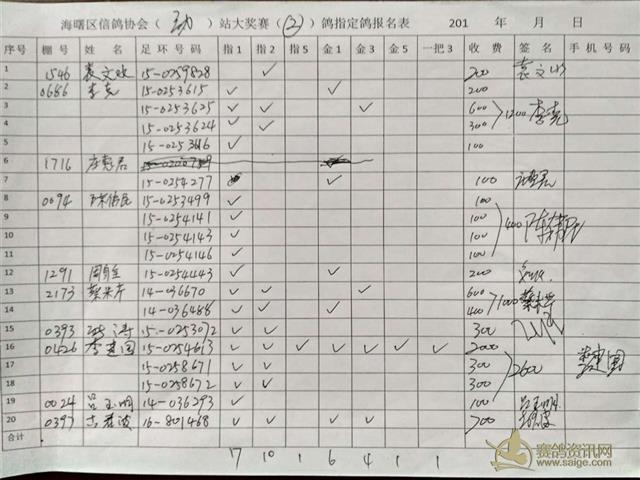 海曙区信鸽协会（ ）站大奖赛（②）鸽指定鸽报名表 201 年 月 日
序号 棚号 姓名 足环号码 指1 指2 指5 金1 金3 金5 一把3 收费 签名 手机号码
1 1546 裘文 15-0259828 ✓ 200 裘文
2 0686 李克 15-0253615 ✓ ✓ 200
3 15-0253625 ✓ ✓ ✓ ✓ 600 1200 李克
4 15-0253624 ✓ ✓ 300
5 ✓ 100
6 1716
7 15-0254277 ✓ 100
8 0094 陈伟民 15-0253499 ✓ 100
9 15-0254141 ✓ 100 400 陈伟民
10 15-0254143 ✓ 100
11 15-0254146 ✓ 100
12 1291 15-0254443 ✓ ✓ 200
13 2173 蔡来芹 14-036670 ✓ ✓ ✓ ✓ 600 1000 蔡来芹
14 14-036488 ✓ ✓ ✓ 400
15 0393 15-0253072 ✓ ✓ 300
16 0426 李建国 15-0254613 ✓ ✓ ✓ ✓ ✓ ✓ ✓ 2000
17 15-0258671 ✓ ✓ 300 2600 李建国
18 15-0258672 ✓ ✓ 300
19 0024 吕玉明 14-036293 ✓ 100 吕玉明
20 0397 16-801468 ✓ ✓ ✓ ✓ 700
合计
17 10 1 6 4 1 1
赛鸽资讯网
www.saige.com